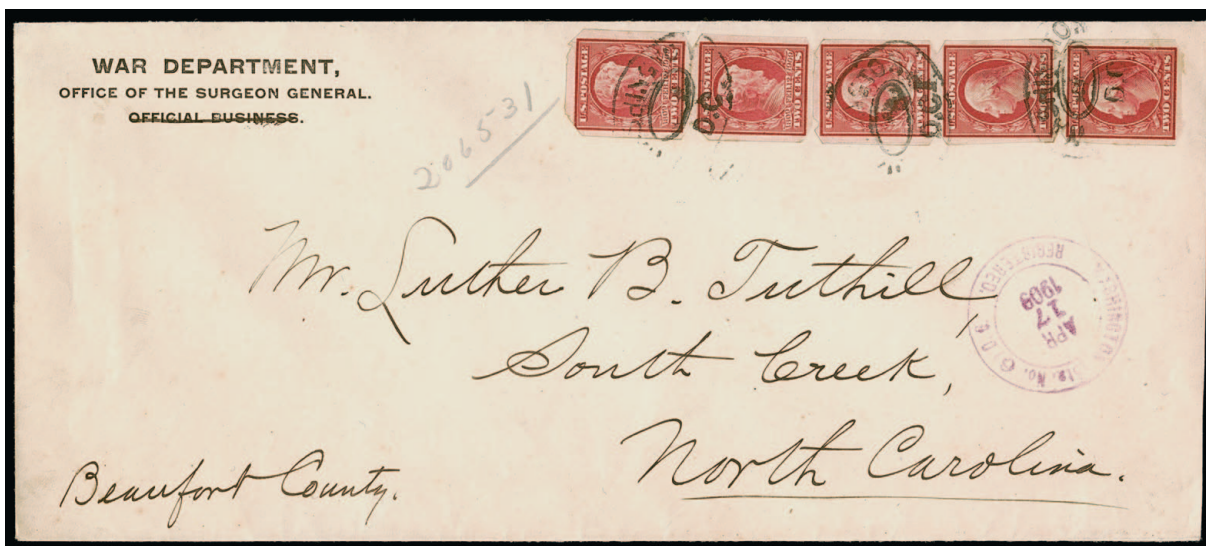 WAR DEPARTMENT,
OFFICE OF THE SURGEON GENERAL.
OFFICIAL BUSINESS.
206531
U.S. POSTAGE
TWO CENTS
U.S. POSTAGE
TWO CENTS
U.S. POSTAGE
TWO CENTS
U.S. POSTAGE
TWO CENTS
U.S. POSTAGE
TWO CENTS
D.C.
Mr. Luther B. Tuthill,
South Creek,
North Carolina.
Beaufort County.
REGISTERED.
APR
17
1909
Sta. No. 6